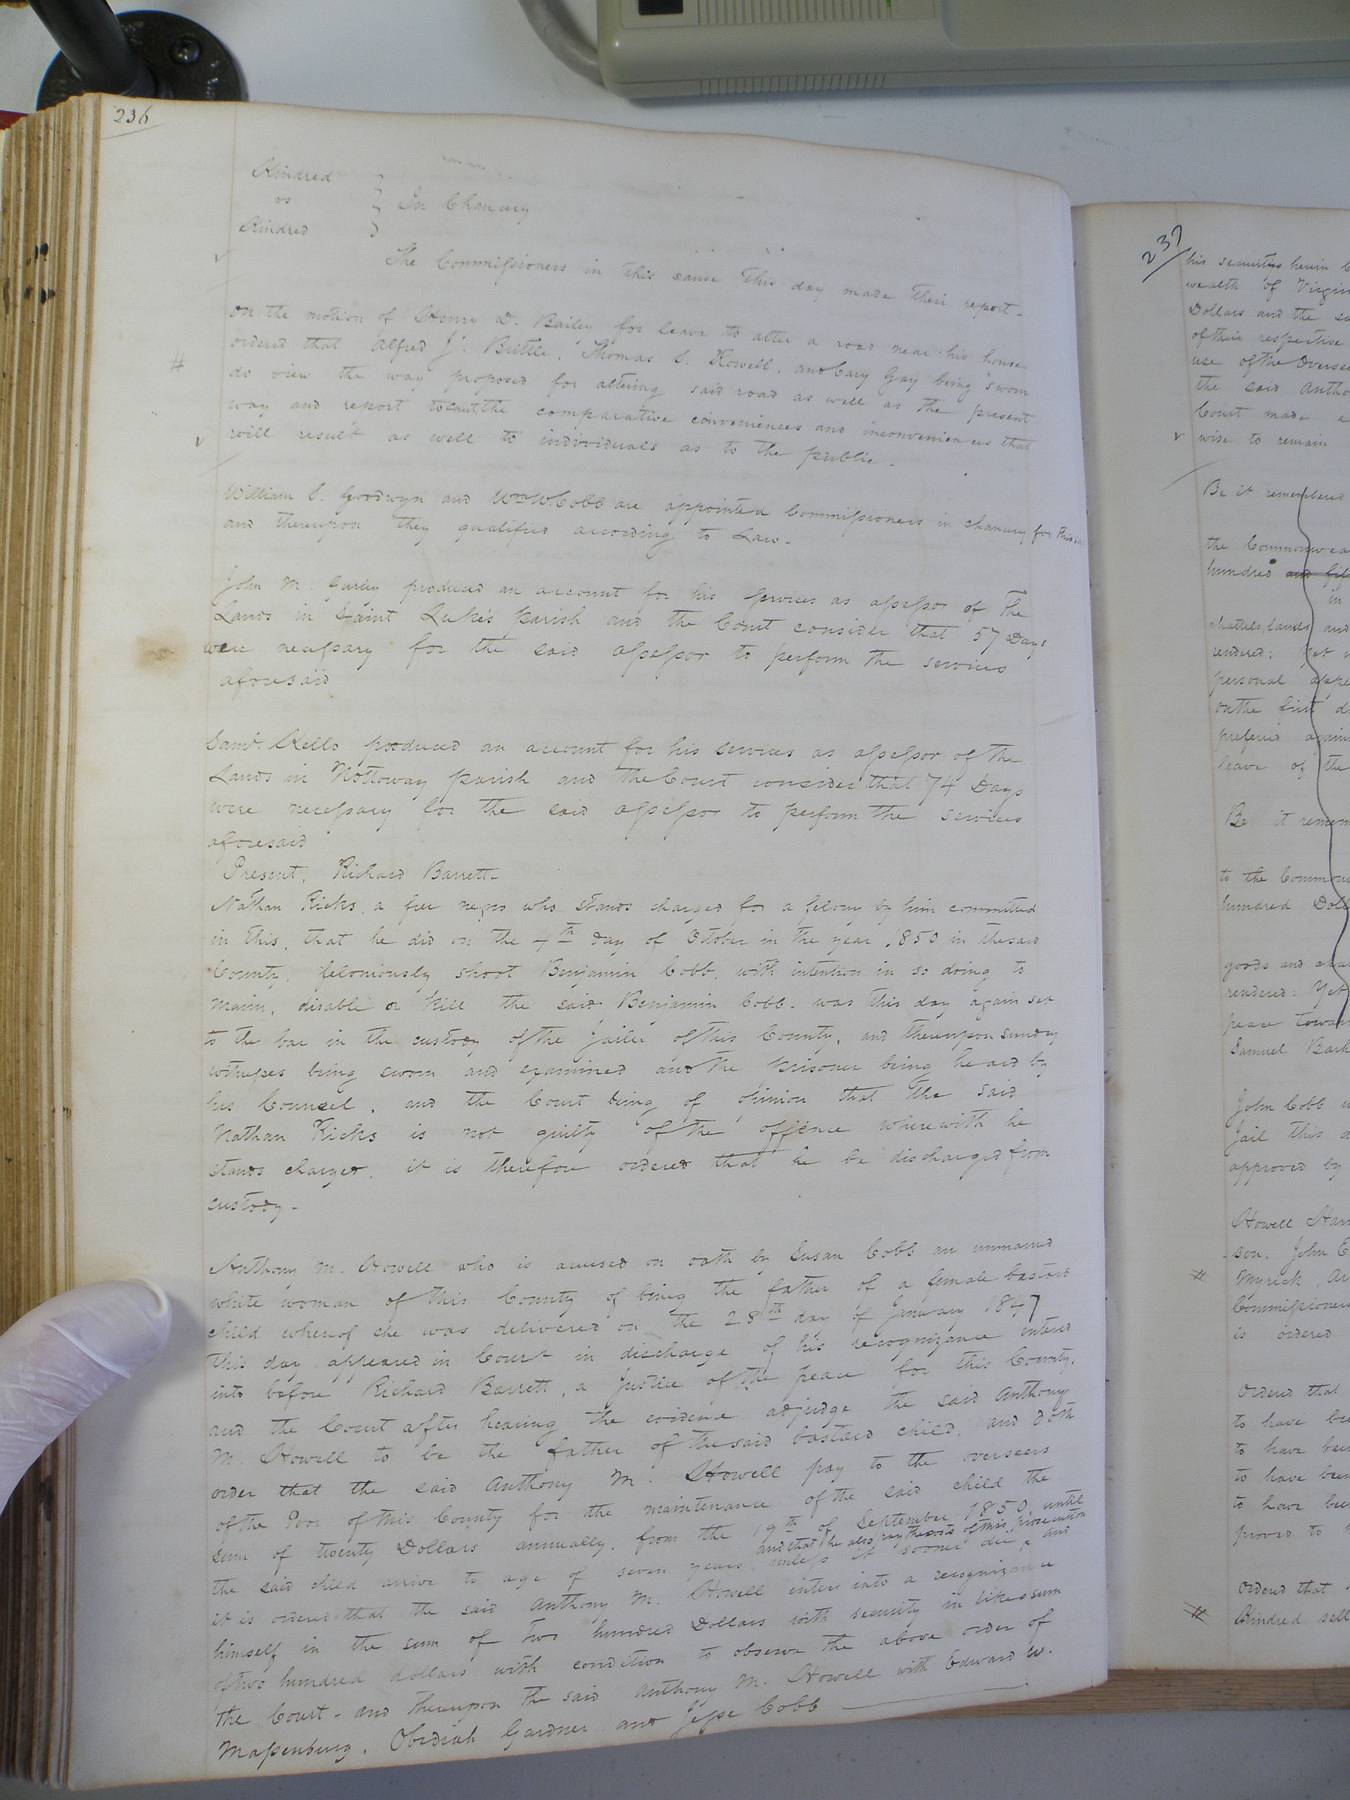 236
Kindred
vs
Kindred
In Chancery
The Commissioners in this cause this day made their report-
On the motion of Henry D. Bailey for leave to alter a road near his house
ordered that Alfred J. Bittle, Thomas S. Howell, and Cary Gay being sworn
do view the way proposed for altering said road as well as the present
way and report to Court, the comparative conveniences and inconveniences that
will result as well to individuals as to the public.
William S. Goodwyn and Wm W Cobb are appointed Commissioners in chancery for this
and thereupon they qualified according to Law.
John M. Gurley produced an account for his services as assessor of the
Lands in Saint Luke's parish and the Court consider that 57 Days
were necessary for the said assessor to perform the services
aforesaid
Saml. Kello produced an account for his services as assessor of the
Lands in Nottoway parish and the Court consider that 74 Days
were necessary for the said assessor to perform the services
aforesaid
Present, Richard Barrett-
Nathan Ricks, a free negro who stands charged for a felony by him committed
in this, that he did on the 4th day of October in the year 1850 in the said
County, feloniously shoot Benjamin Cobb, with intention in so doing to
maim, disable or kill the said Benjamin Cobb. was this day again set
to the bar in the custody of the Jailer of this County, and thereupon sundry
witnesses being sworn and examined and the prisoner being heard by
his Counsel, and the Court being of opinion that the said
Nathan Ricks is not guilty of the offence wherewith he
stands charged, it is therefore ordered that he be discharged from
custody-
Anthony M. Howell who is accused on oath by Susan Cobb an unmarried
white woman of this County of being the father of a female bastard
child whereof she was delivered on the 28th day of January 1847
this day appeared in Court in discharge of his recognizance entered
into before Richard Barrett, a Justice of the peace for this County,
and the Court after hearing the evidence adjudge the said Anthony
M. Howell to be the father of the said bastard child, and doth
order that the said Anthony M. Howell pay to the overseers
of the Poor of this County for the maintenance of the said child the
sum of twenty Dollars annually, from the 19th of September 1850, until
the said child arrive to age of seven years unless it sooner die, and
and that he also pay the costs of this prosecution
it is ordered that the said Anthony M. Howell enter into a recognizance
himself in the sum of two hundred Dollars with security in like sum
of two hundred dollars with condition to observe the above order of
the Court- and thereupon the said Anthony M. Howell with Edward W.
Massenburg, Obidiah Gardner and Jesse Cobb
237
his securities herein
wealth of Virgin
Dollars and the
of their respective
use of the Oversee
the said Antho
Court made
wise to remain
Be it remembered
the Commonwea
hundred and
in
chattels, lands and
rendered; Yet
personal appe
on the first d
preferred again
leave of the
Be it remem
to the Commo
hundred Doll
goods and cha
rendered: Yet
peace towar
Samuel Bark
John Cobb
Jail this
approved by
Howell Har
son, John E
Myrick, Ar
Commissioners
is ordered
Ordered that
to have bee
to have been
to have been
to have be
proved to
Ordered that
Kindred sell